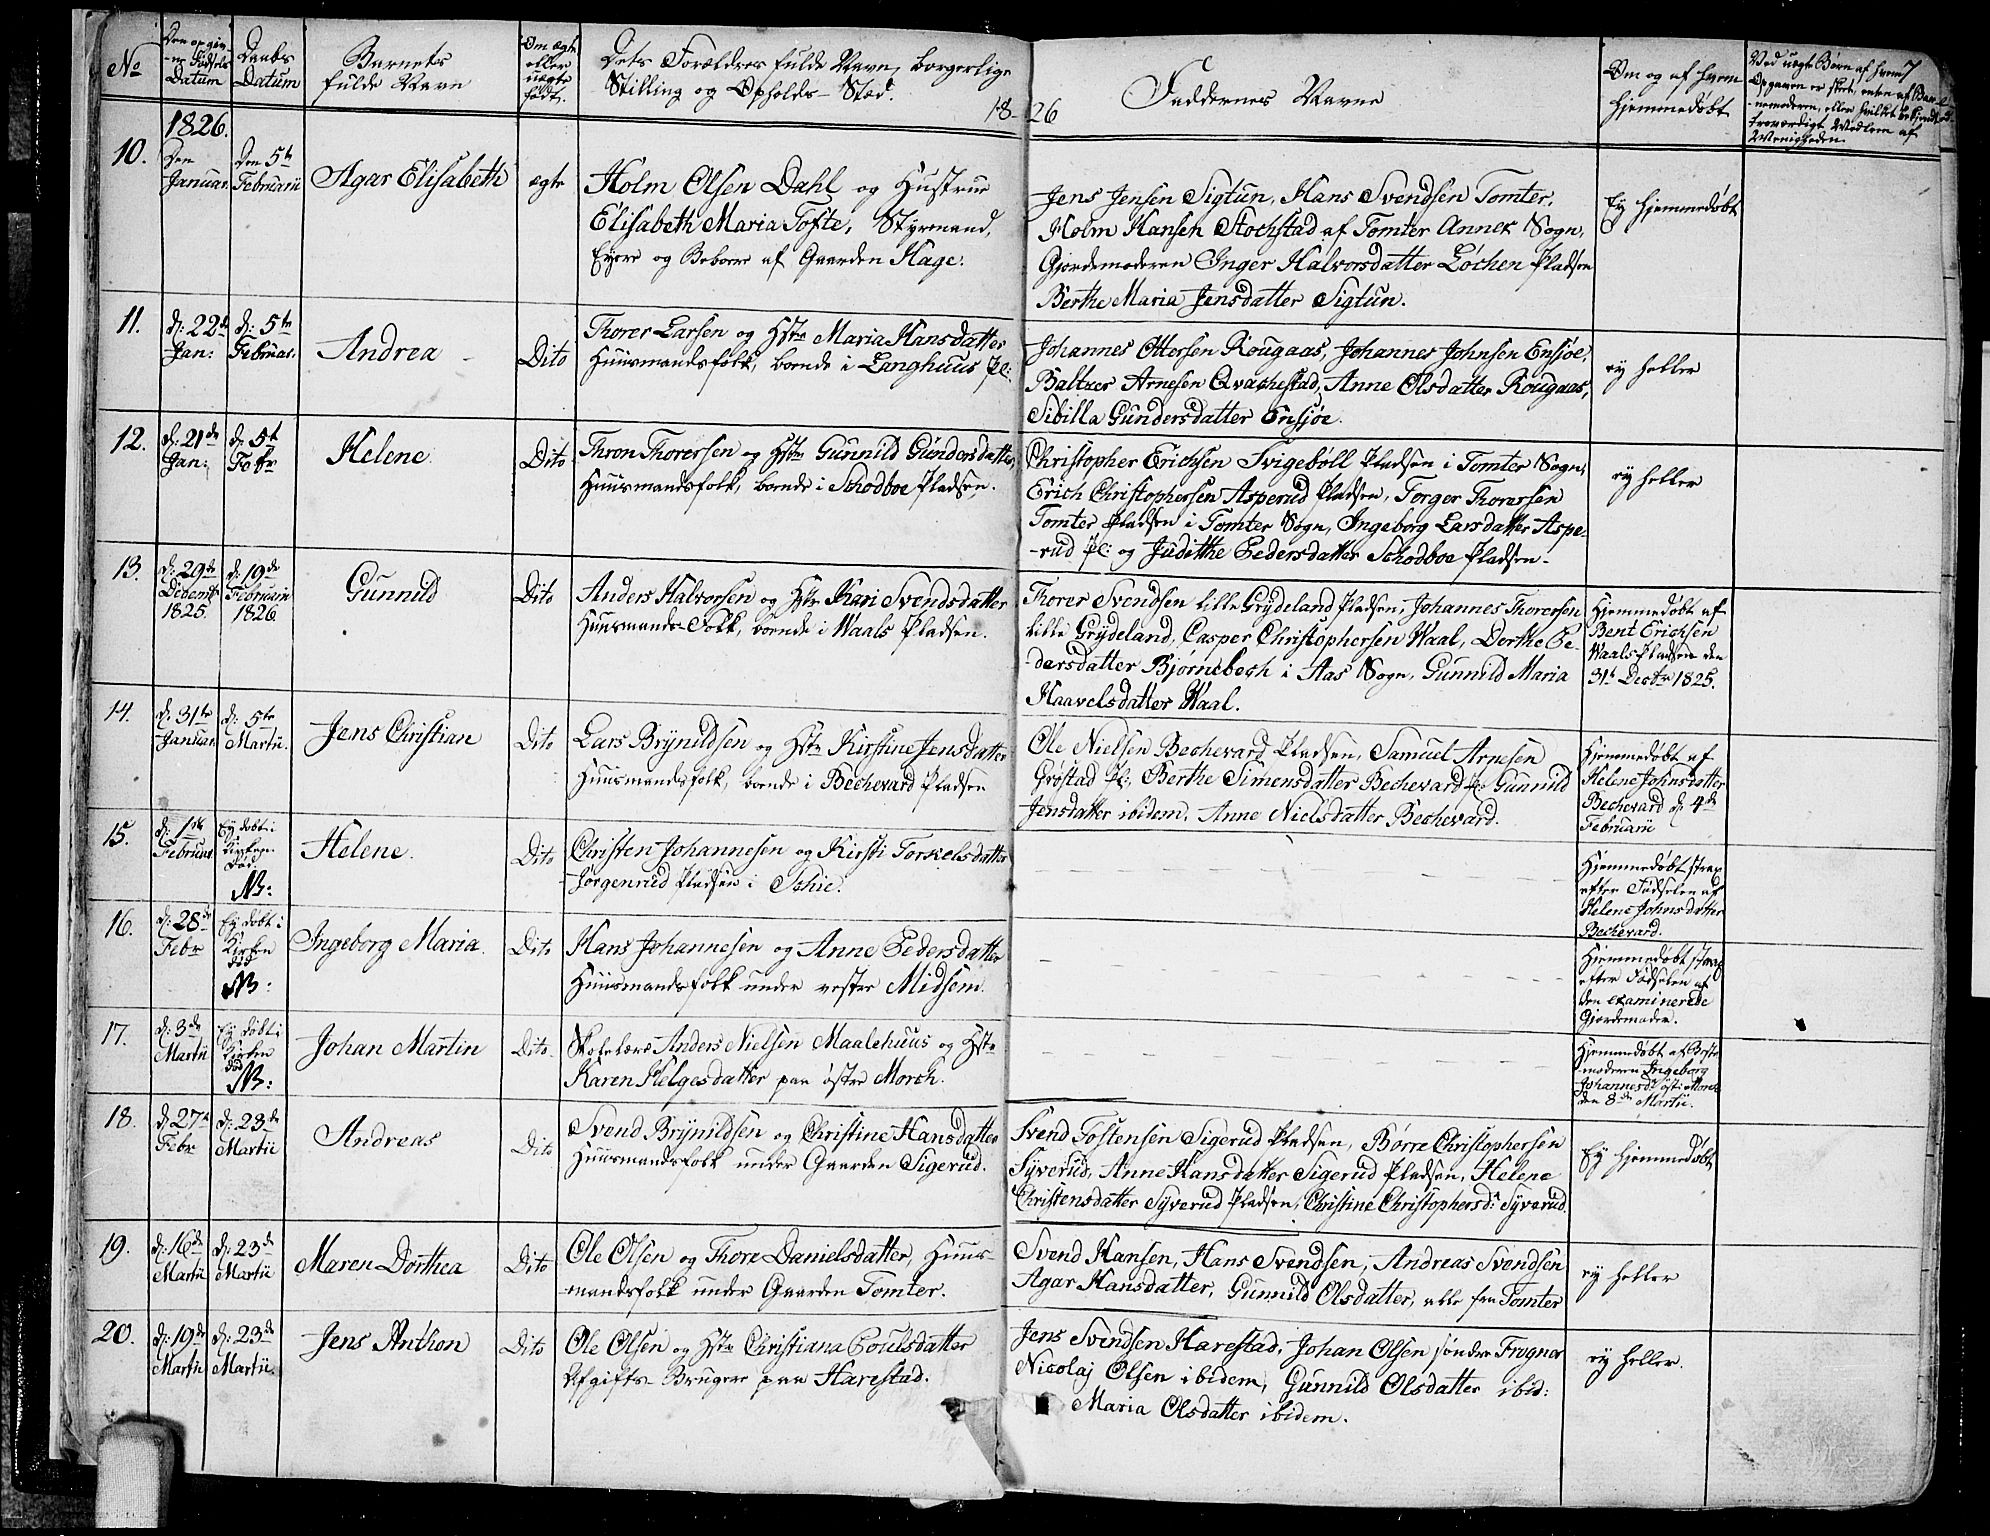 No
Den opgiv-
ne Fødsels
Datum
Daabs
Datum
Barnets
fulde Navn
Om ægte
eller
uægte
født.
Dets Forældres fulde Navn, borgerlige
Stilling og Opholds-Sted.
18-
26
Faddernes Navne
Om og af hvem
hjemmedøbt
7
Ved uægte Børn af hvem
Opgaven er skeet, enten af Bar-
nemoderen, eller hvilket bekjendt og
troværdigt Medlem af
Menigheden.
10.
1826.
Den
Januar.
Den 5te
Februarii
Agar Elisabeth
ægte
Holm Olsen Dahl og Hustrue
Elisabeth Maria Tofte, Styrmand,
Eyere og Beboere af Gaarden Hage.
Jens Jensen Sigtun, Hans Svendsen Tomter,
Holm Hansen Stochstad af Tomter Annex Sogn,
Gjordemoderen Inger Halvorsdatter Løchen Pladsen
Berthe Maria Jensdatter Sigtun.
Ey hjemmedøbt
11.
d: 22de
Jan:
d: 5te
Februar.
Andrea
Dito
Thorer Larsen og Hstr Maria Hansdatter
Huusmandsfolk, boende i Langhuus Pl:
Johannes Ottersen Rougaas, Johannes Johnsen Ensjøe,
Baltzer Arnesen Qvachestad, Anne Olsdatter Rougaas,
Sibilla Gundersdatter Ensjøe.
ey heller
12.
d: 21de
Jan:
d: 5t
Febr
Helene
Dito
Thron Thorersen og Hstr Gunnild Gundersdatter,
Huusmandsfolk, boende i Schodboe Pladsen.
Christopher Erichsen Svigeboll Pladsen i Tomter Sogn,
Erich Christophersen Asperud Pladsen, Torger Thorersen
Tomter Pladsen i Tomter Sogn, Ingeborg Larsdatter Aspe-
-rud Pl: og Judithe Pedersdatter Schodboe Pladsen.
ey heller
13.
d: 29de
Decemb
1825.
d: 19de
Februarii
1826.
Gunnild
Dito
Anders Halvorsen og Hstr Kari Svendsdatter
Huusmands-Folk, boende i Waals Pladsen.
Thorer Svendsen lille Grydeland Pladsen, Johannes Thorersen
lille Grydeland, Casper Christophersen Waal, Dorthe Pe-
-dersdatter Bjørnebech i Aas Sogn, Gunnild Maria
Haavelsdatter Waal.
Hjemmedøbt af
Bent Erichsen
Waals Pladsen den
31t Decbr 1825.
14.
d: 31te
Januar.
d: 5te
Martii.
Jens Christian
Dito
Lars Brynildsen og Hstr Kirstine Jensdatter
Huusmandsfolk, boende i Bechevard Pladsen
Ole Nielsen Bechevard Pladsen, Samuel Arnesen
Grøstad Pl:, Berthe Simensdatter Bechevard Pl: Gunnild
Jensdatter ibidem. Anne Nielsdatter Bechevard.
Hjemmedøbt af
Helene Johnsdatter
Bechevard d: 4de
Februarii
15.
d: 1ste
Februar
Ey døbt i
Kirken
død.
NB:
Helene.
Dito
Christen Johannesen og Kirsti Torkelsdatter
Jørgenrud Pladsen i Schie.
Hjemmedøbt strax
efter Fødselen af
Helene Johnsdatter
Bechevard.
16.
d: 28de
Febr
Ey døbt i
Kirken
død
NB:
Ingeborg Maria.
Dito
Hans Johannesen og Anne Pedersdatter
Huusmandsfolk under vestre Midsem.
Hjemmedøbt strax
efter Fødselen af
den examinerede
Gjordemoder.
17.
d: 3de
Martii
Ey døbt i
Kirken
død
NB:
Johan Martin
Dito.
Skolelærer Anders Nielsen Maalehuus og Hstr
Karen Helgesdatter paa østre Morch.
Hjemmedøbt af Beste-
moderen Ingeborg
Johannesdr østre Morch
den 8de Martii.
18.
d: 27d
Febr
d: 23de
Martii
Andreas
Dito
Svend Brynildsen og Christine Hansdatter
Huusmandsfolk under Gaarden Sigerud.
Svend Tostensen Sigerud Pladsen, Børre Christophersen
Syverud, Anne Hansdatter Sigerud Pladsen, Helene
Christensdatter Syverud Pladsen, Christine Christophersdr Syverud.
Ey hjemmedøbt
19.
d: 16de
Martii
d: 23de
Martii
Maren Dorthea
Dito
Ole Olsen og Thore Danielsdatter, Huus-
-mandsfolk under Gaarden Tomter.
Svend Hansen, Hans Svendsen, Andreas Svendsen
Agar Hansdatter, Gunnild Olsdatter, alle fra Tomter
ey heller
20.
d: 19de
Martii
d: 23de
Martii.
Jens Anthon
Dito
Ole Olsen og Hstr Christiana Poulsdatter
Afgifts-Brugere paa Harestad.
Jens Svendsen Harestad, Johan Olsen søndre Frogner
Nicolaj Olsen ibidem, Gunnild Olsdatter ibid:
Maria Olsdatter ibidem.
ey heller.